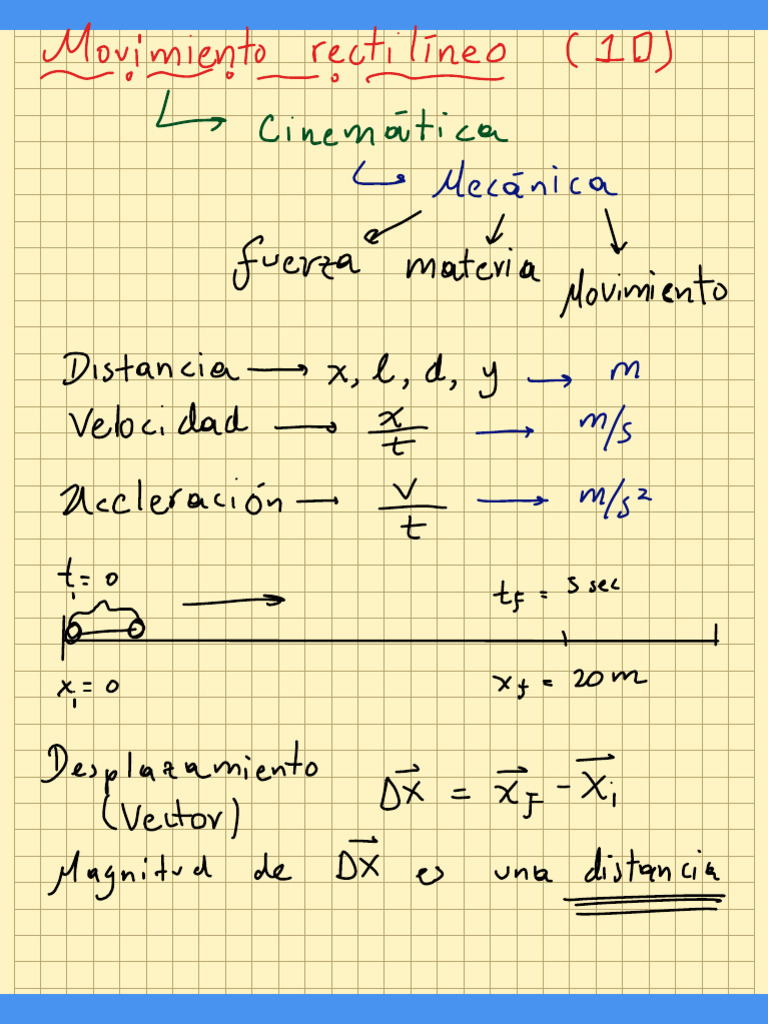 Movimiento rectilíneo (1D)
↳ Cinemática
↳ Mecánica
fuerza materia Movimiento
Distancia → x, l, d, y → m
Velocidad → x/t → m/s
Accleración → v/t → m/s²
tᵢ = 0
t_F = 5 sec
xᵢ = 0
x_f = 20 m
Desplazamiento
(Vector)
Δx⃗ = x⃗_F - x⃗ᵢ
Magnitud de Δx⃗ es una distancia